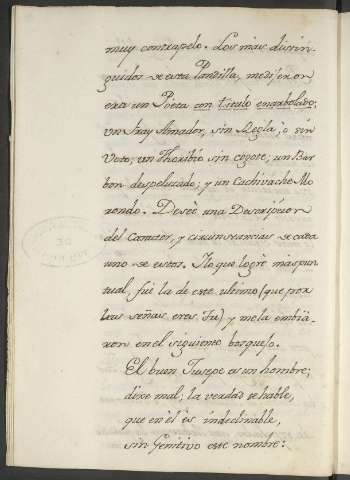 muy contrapelo. Los mas distin-
guidos de esta Pandilla, medijeron
era un Poëta con titulo engarbolado;
un Fray Amador, sin Regla, ò sin
Voto; un sin cogote; un Bar
bon despeluzado; y un Cachivache Mo
rondo. Deseè una Descripcion
del Caracter, y circunstancias de cada
uno de estos. Lo que logrè mas pun
tual, fué la de este ultimo (que por
las señas eres Tu) y mela embia-
ron en el siguiente bosquejo.
El buen Jusepe es un hombre;
dixe mal; la verdad se hable,
que en èl ès indeclinable,
sin Genitivo este nombre: